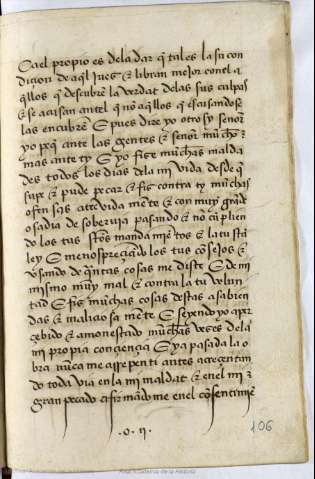 Ca el propio es de la dar q̃ tal es la su con
diçion de aq̃l jues & libran mejor con el a
q̃llos q̃ descubrẽ la verdat de las sus culpas
& se acusan antel q̃ nõ aq̃llos q̃ escusandose
las encubrẽ E pues dire yo otrosy señor
yo peq̃ ante las gentes & señor mucho
mas ante ty E yo fise muchas malda
des todos los dias dela mi vida desde q̃
supe & pude pecar & fis contra ty muchas
ofensas atrevida mẽte & con muy grãd
osadia de soberuja pasando & nõ cũplien
do los tus sc̃tos manda miẽtos & la tu sc̃ta
ley E menospreçiãdo los tus cõsejos &
vsando de q̃ntas cosas me diste E de mi
mismo muy mal & contra la tu volun
tad E fis muchas cosas destas a sabien
das & maliçiosa mẽte E seyendo yo aper
çebido & amonestado muchas veses dela
mi propia conçiençia E ya pasada la o
bra nũca me arrepenti antes acreçentan
do toda via en la mi maldat & en el mi
gran pecado & firmãdo me en el cõsentimiẽ
.o. ij.
106